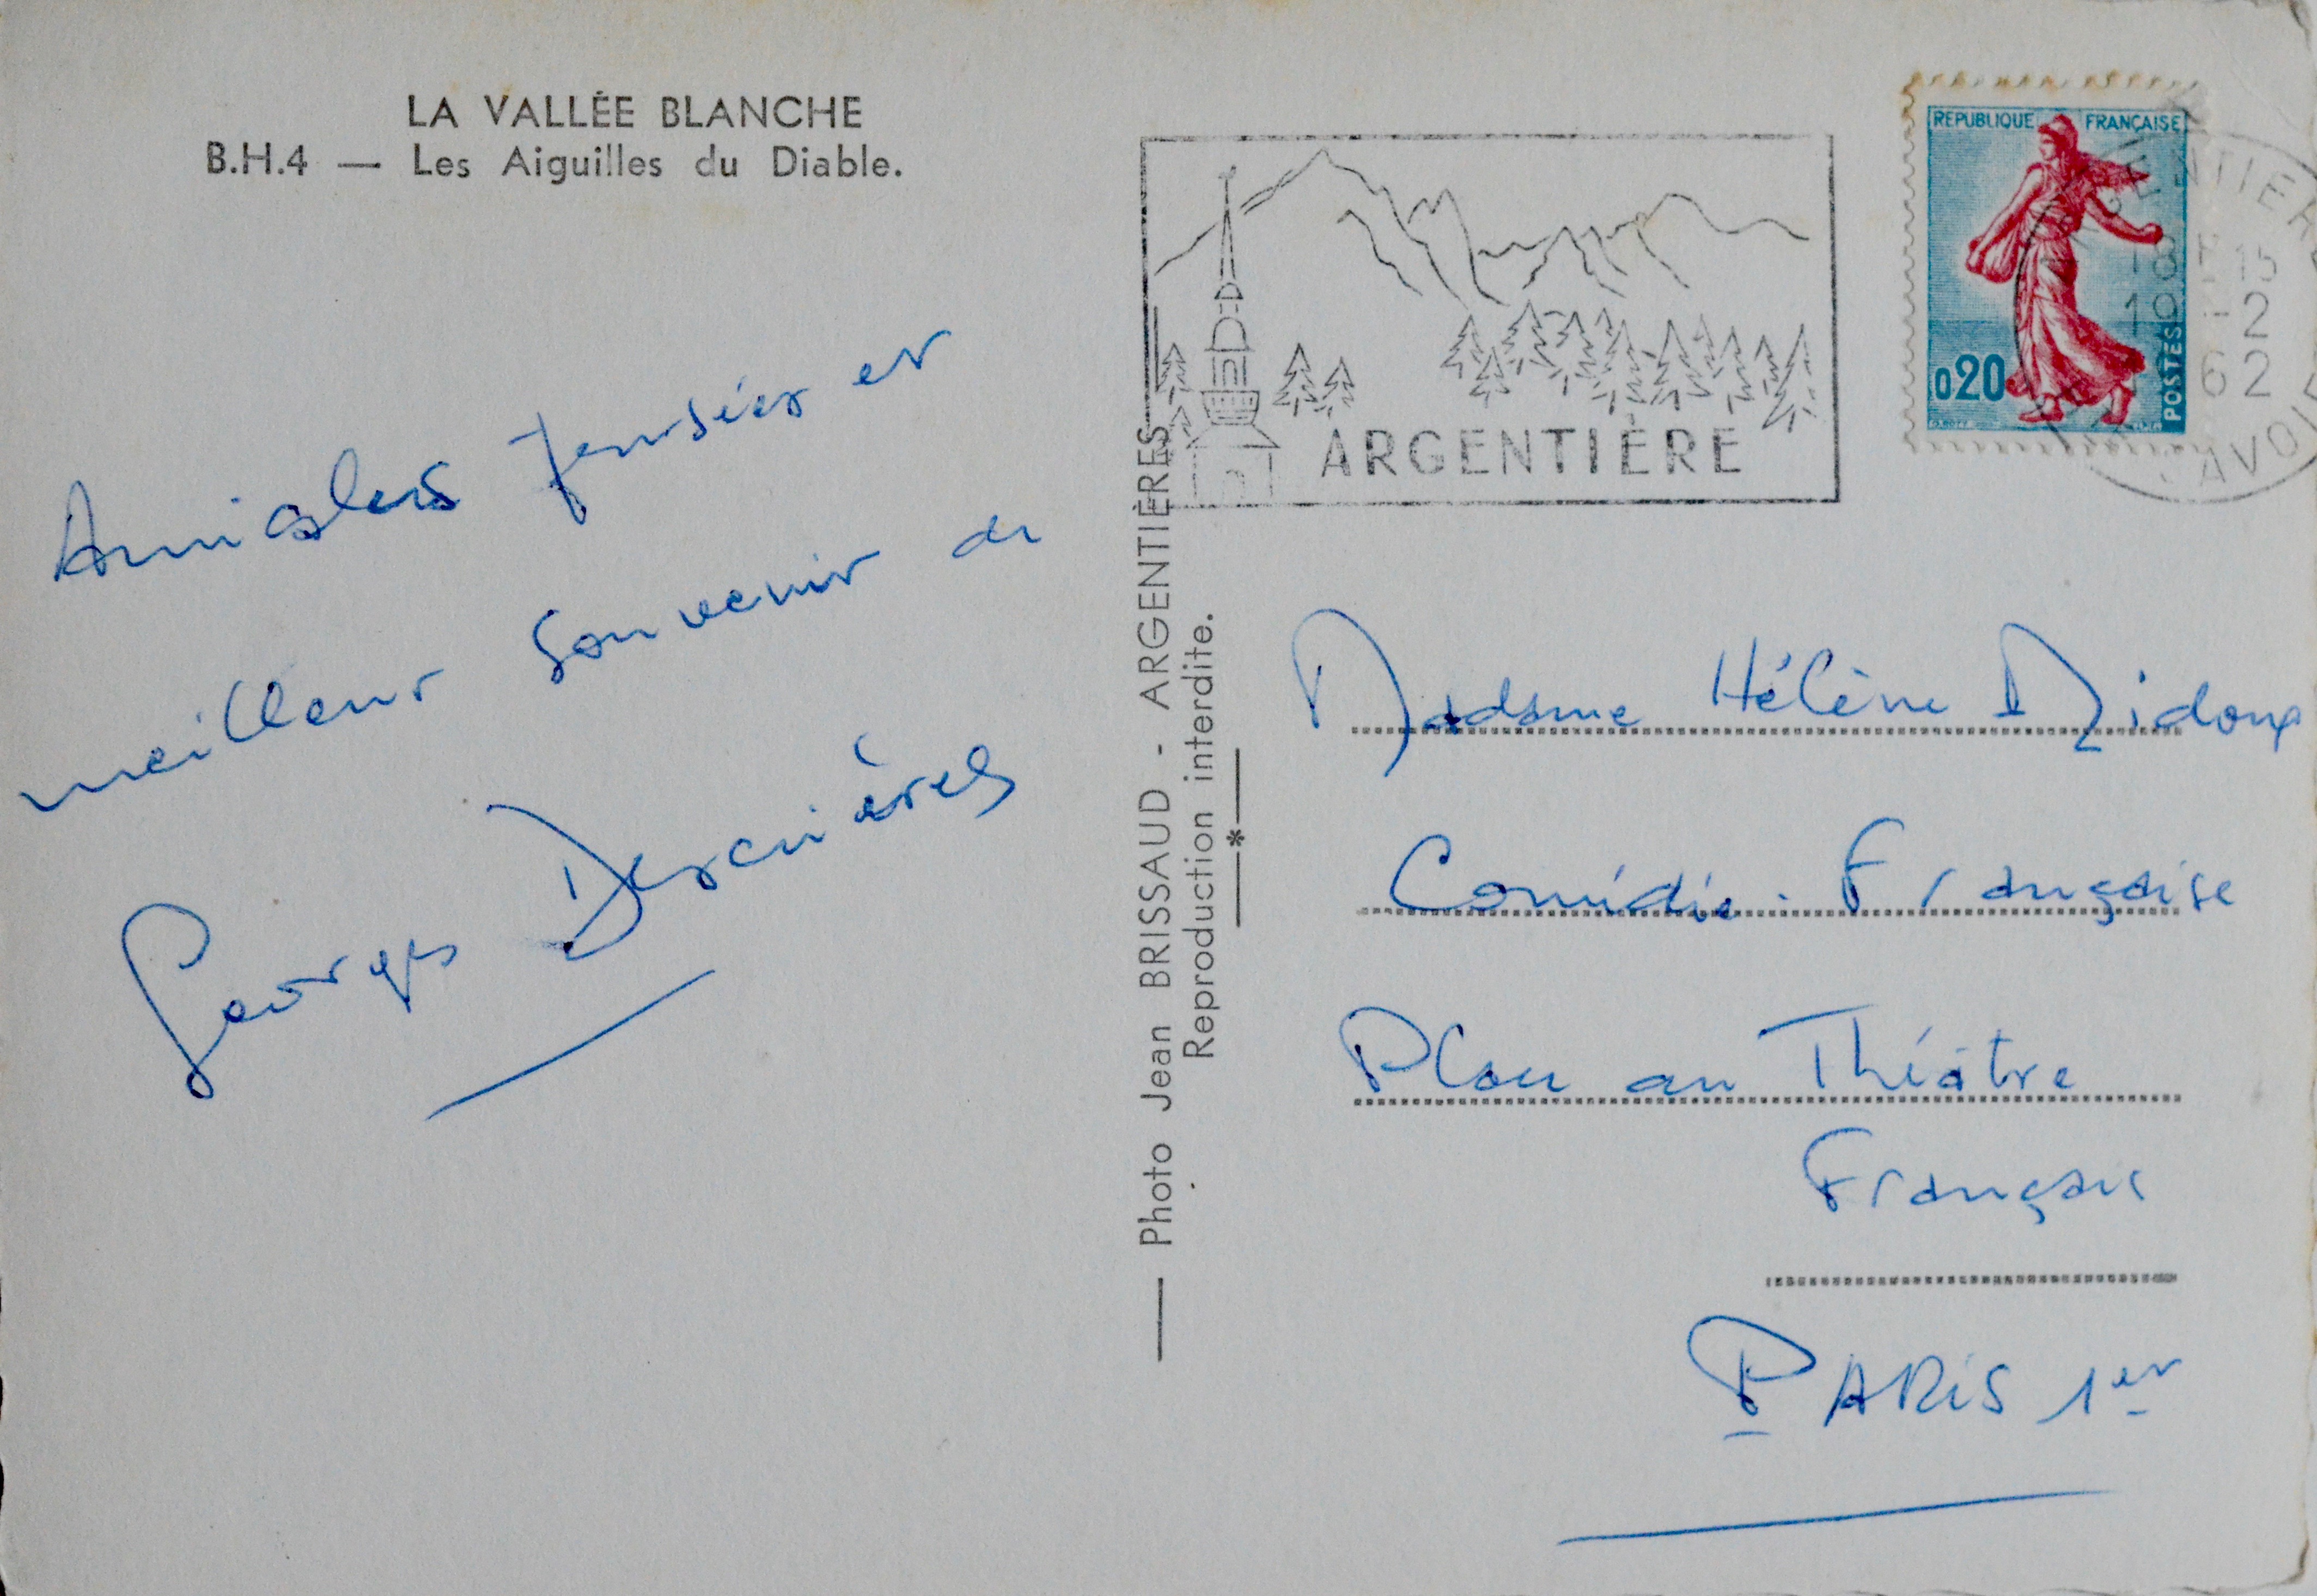 LA VALLÉE BLANCHE
B.H.4 — Les Aiguilles du Diable.
Amicales pensées et
meilleur souvenir de
Georges Descrières
Photo Jean BRISSAUD - ARGENTIÈRES
Reproduction interdite.
ARGENTIÈRE
REPUBLIQUE FRANÇAISE
0,20
POSTES
15
-2
62
Madame Hélène Didoux
Comédie-Française
Place au Théâtre
Français
PARIS 1er